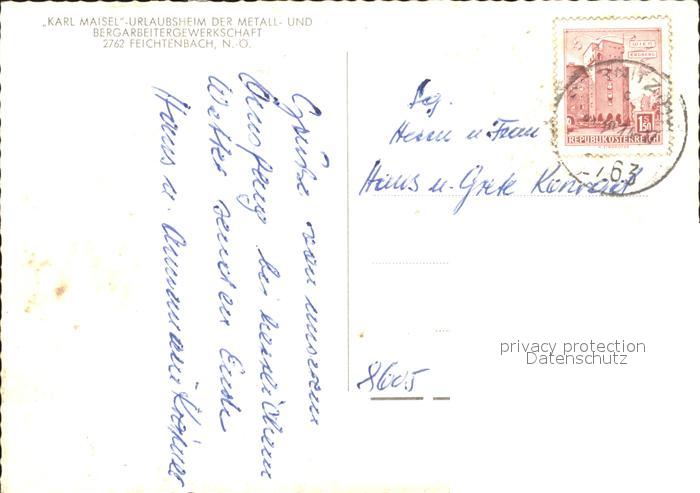 „KARL MAISEL"-URLAUBSHEIM DER METALL- UND
BERGARBEITERGEWERKSCHAFT
2762 FEICHTENBACH, N.-Ö.
Grüße von unserem
bei herrlichem
Wetter senden Euch
Hans u. Annemarie
WIEN
ERDBERG
1.50
REPUBLIK ÖSTERREICH
763
Herrn u. Frau
Hans u. Grete Konrad
8605
privacy protection
Datenschutz